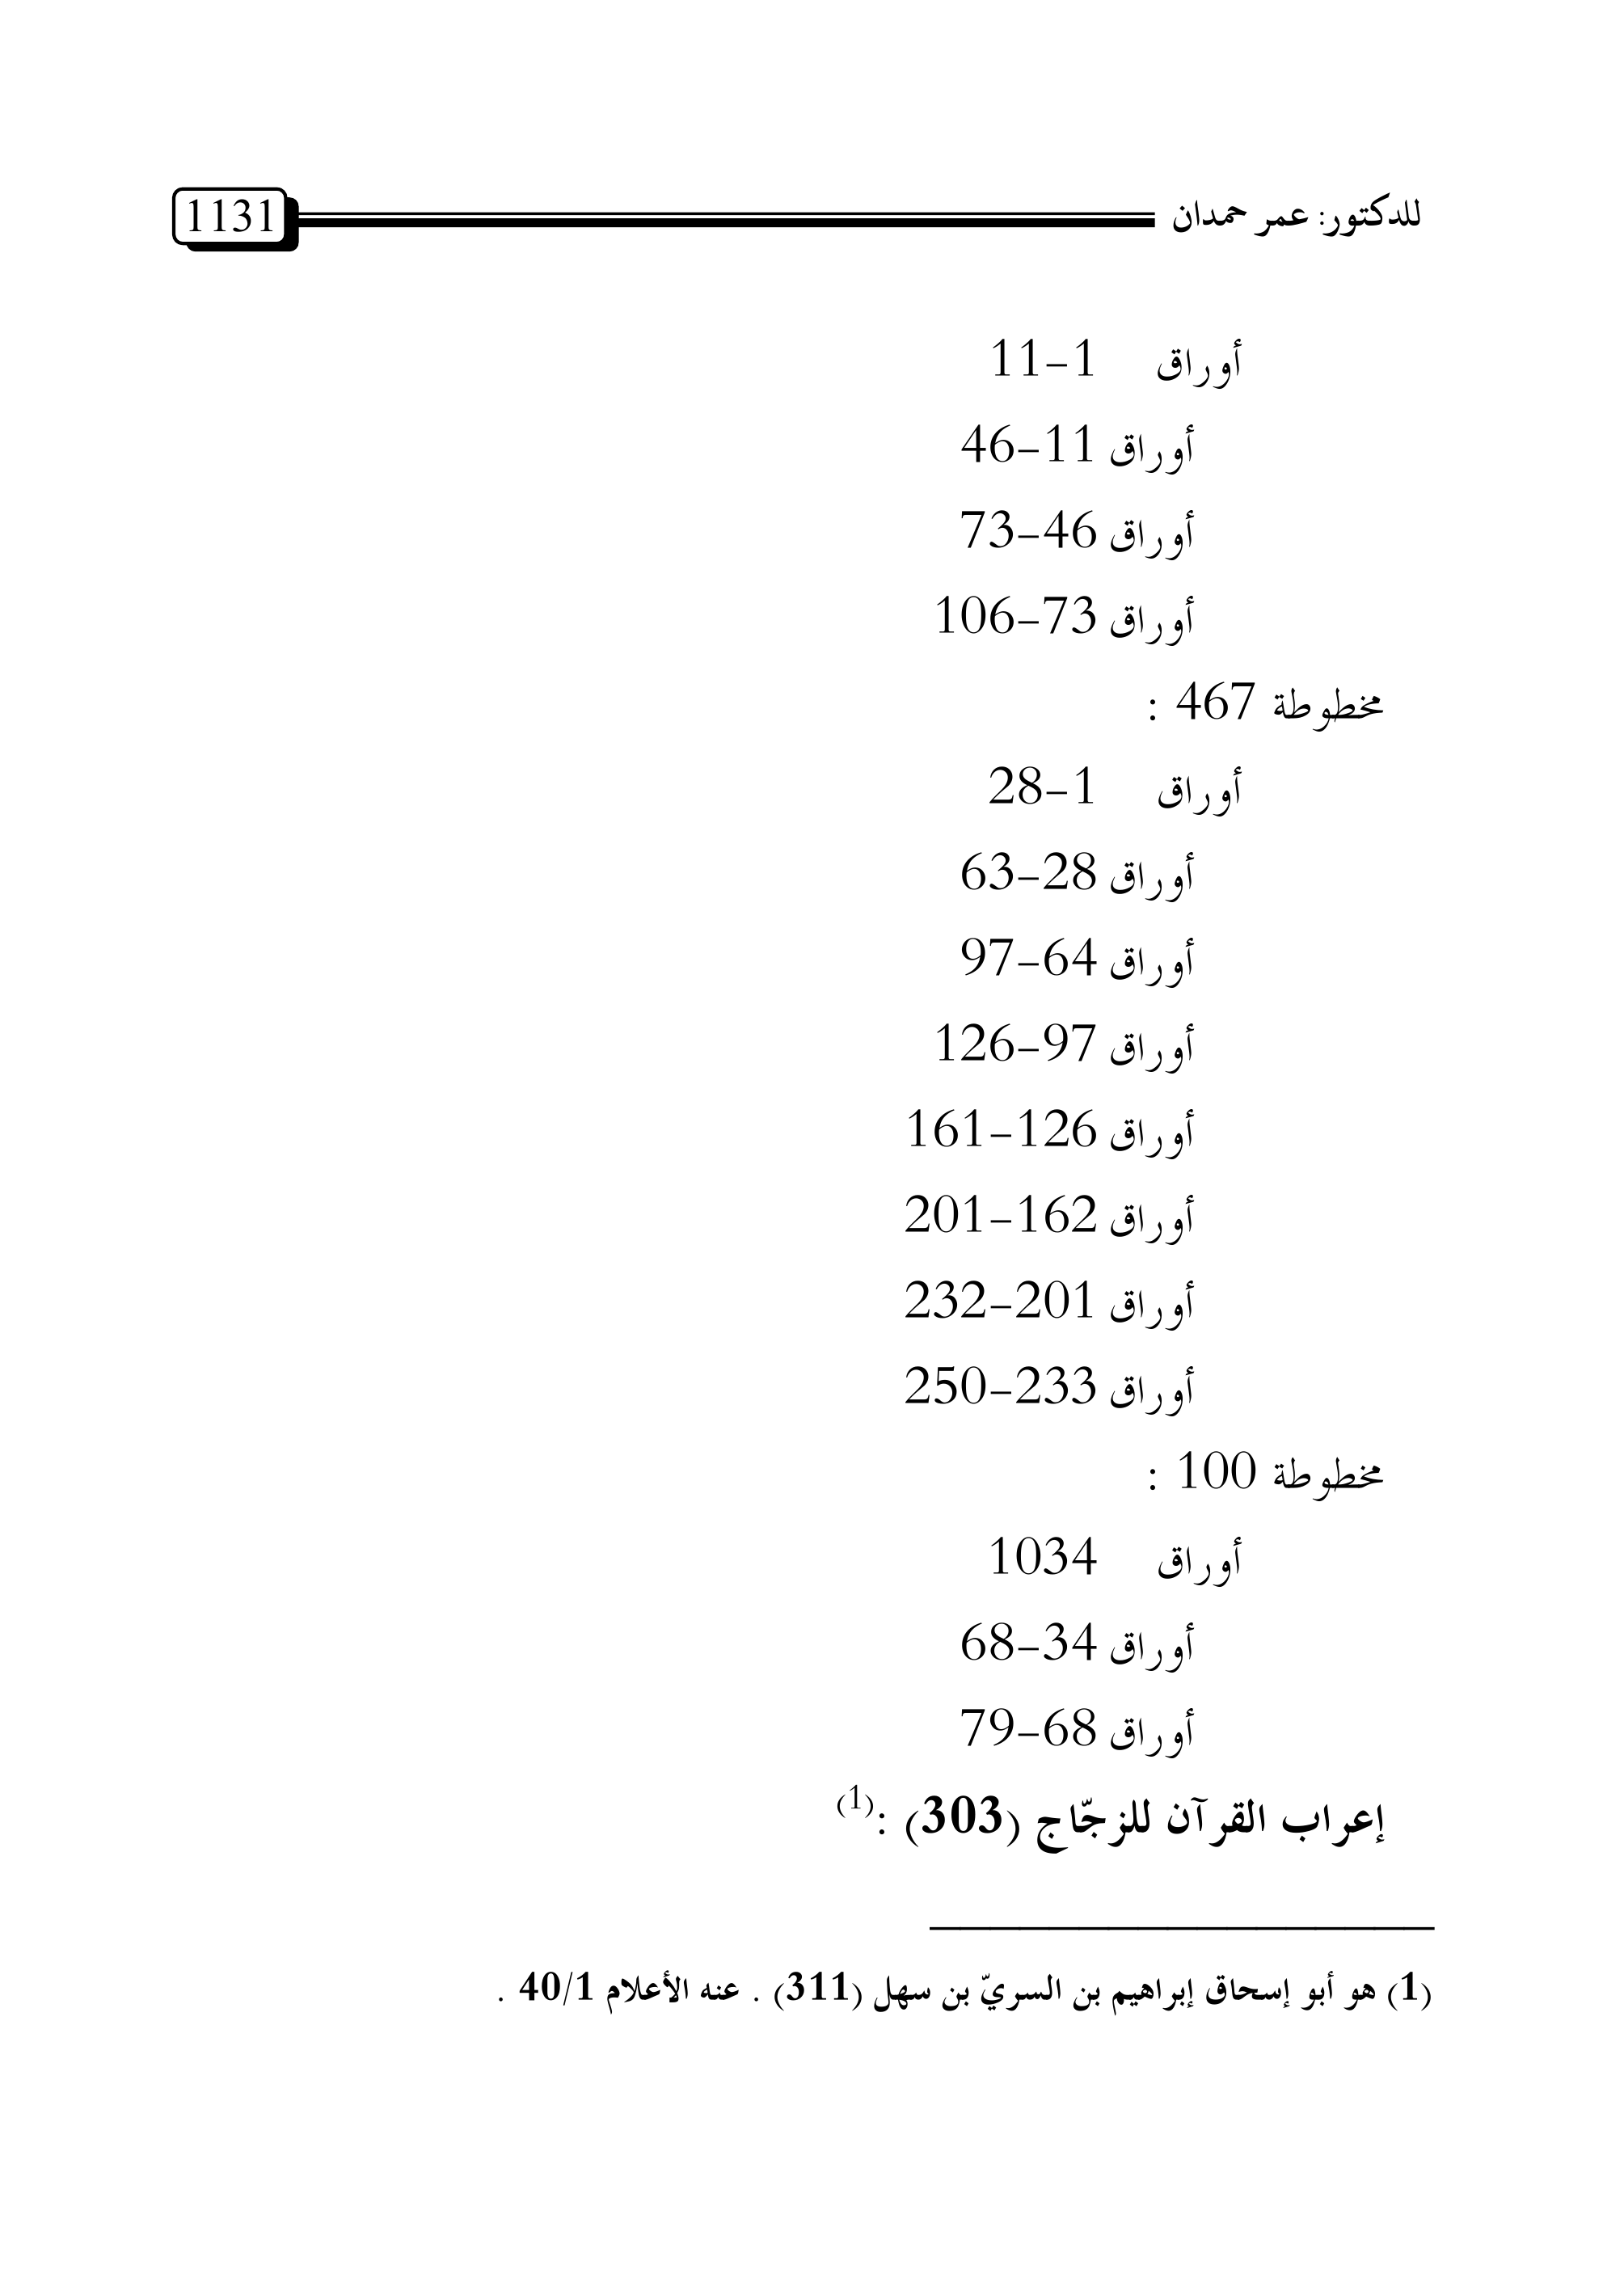 للدكتور: عمر حمدان 1131
أوراق 1-11
أوراق 11-46
أوراق 46-73
أوراق 73-106
مخطوطة 467 :
أوراق 1-28
أوراق 28-63
أوراق 64-97
أوراق 97-126
أوراق 126-161
أوراق 162-201
أوراق 201-232
أوراق 233-250
مخطوطة 100 :
أوراق 1034
أوراق 34-68
أوراق 68-79
إعراب القرآن للزجّاج (303) :(1)
(1) هو أبو إسحاق إبراهيم بن السريّ بن سهل (311) . عنه الأعلام 40/1 .